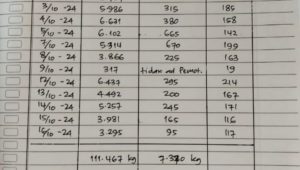 3/10 -24 5.986 315 185
4/10 -24 6.631 380 158
5/10 -24 6.102 665 142
7/10 -24 5.314 670 199
8/10 -24 3.866 225 163
9/10 -24 317 tidak ad Pemot. 19
12/10 -24 6.437 295 214
13/10 -24 4.492 200 167
14/10 -24 5.257 245 171
15/10 -24 3.931 165 116
16/10 -24 3.295 95 117
111.467 kg 7.320 kg